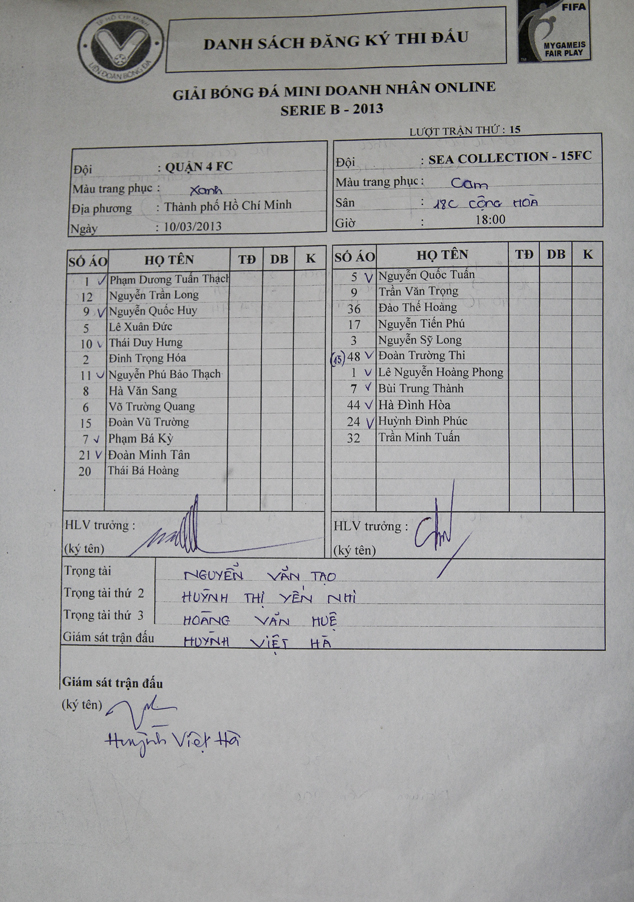 TP HỒ CHÍ MINH
LIÊN ĐOÀN BÓNG ĐÁ
DANH SÁCH ĐĂNG KÝ THI ĐẤU
FIFA
MYGAMEIS
FAIR PLAY
GIẢI BÓNG ĐÁ MINI DOANH NHÂN ONLINE
SERIE B - 2013
LƯỢT TRẬN THỨ : 15
Đội : QUẬN 4 FC
Màu trang phục : Xanh
Địa phương : Thành phố Hồ Chí Minh
Ngày : 10/03/2013
Đội : SEA COLLECTION - 15FC
Màu trang phục : Cam
Sân : 18C CỘNG HOÀ
Giờ 18:00
SỐ ÁO HỌ TÊN TĐ DB K
1 V Phạm Dương Tuấn Thạch
12 Nguyễn Trần Long
9 V Nguyễn Quốc Huy
5 Lê Xuân Đức
10 V Thái Duy Hưng
2 Đinh Trọng Hóa
11 V Nguyễn Phú Bảo Thạch
8 Hà Văn Sang
6 Võ Trường Quang
15 Đoàn Vũ Trường
7 V Phạm Bá Kỳ
21 V Đoàn Minh Tân
20 Thái Bá Hoàng
HLV trưởng :
(ký tên)
SỐ ÁO HỌ TÊN TĐ DB K
5 V Nguyễn Quốc Tuấn
9 Trần Văn Trọng
36 Đào Thế Hoàng
17 Nguyễn Tiến Phú
3 Nguyễn Sỹ Long
(15) 48 V Đoàn Trường Thi
1 V Lê Nguyễn Hoàng Phong
7 V Bùi Trung Thành
44 V Hà Đình Hòa
24 V Huỳnh Đình Phúc
32 Trần Minh Tuấn
HLV trưởng :
(ký tên)
Trọng tài NGUYỄN VĂN TẠO
Trọng tài thứ 2 HUỲNH THỊ YẾN NHI
Trọng tài thứ 3 HOÀNG VĂN HUỆ
Giám sát trận đấu HUỲNH VIỆT HÀ
Giám sát trận đấu
(ký tên)
Huỳnh Việt Hà